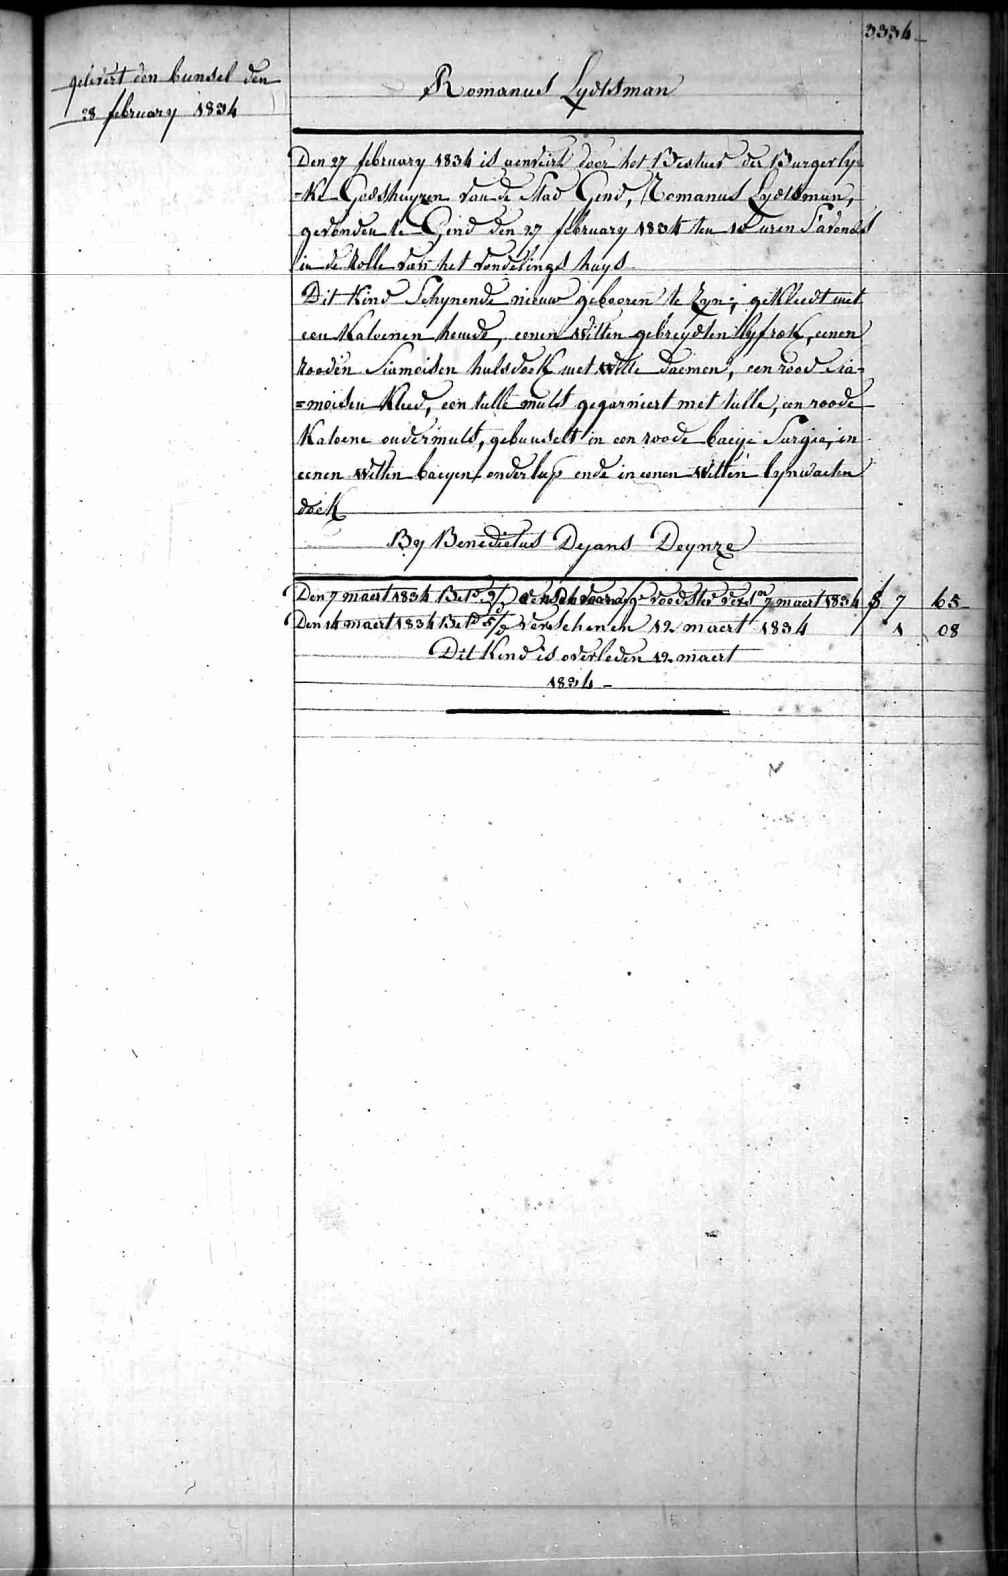 3334
gelevert den bunsel den
28 february 1834
Romanus Lydtsman
Den 27 february 1834 is aenveirt door het Bestuer der Burgerly=
=ke Godshuyzen van de Stad Gend, Romanus Lydtsman,
gevonden te Gend den 27 february 1834 ten 10 uren S'avonds
in de Rolle van het vondelings huys
Dit Kind Schynende nieuw gebooren te Zyn; gekleedt met
een Katoenen hemde, eenen Witten gebreyden lyfrok, eenen
rooden Siamoisen halsdoek met Witte daemen, een rood Sia=
=moisen Kleed, een tulle muts gegarniert met tulle, een roode
Katoene ondermuts, gebunselt in een roode baeye Sargie, in
eenen Witten baeyen onderlap ende in eenen Witten lynwaeten
doek
By Benedictus Deynze
Den 7 maert 1834 Bet.d 7 maert 1834 7 65
Den 14 maert 1834 Bet.d verschenen 12 maert 1834 1 08
Dit Kind is overleden 12 maert
1834 -